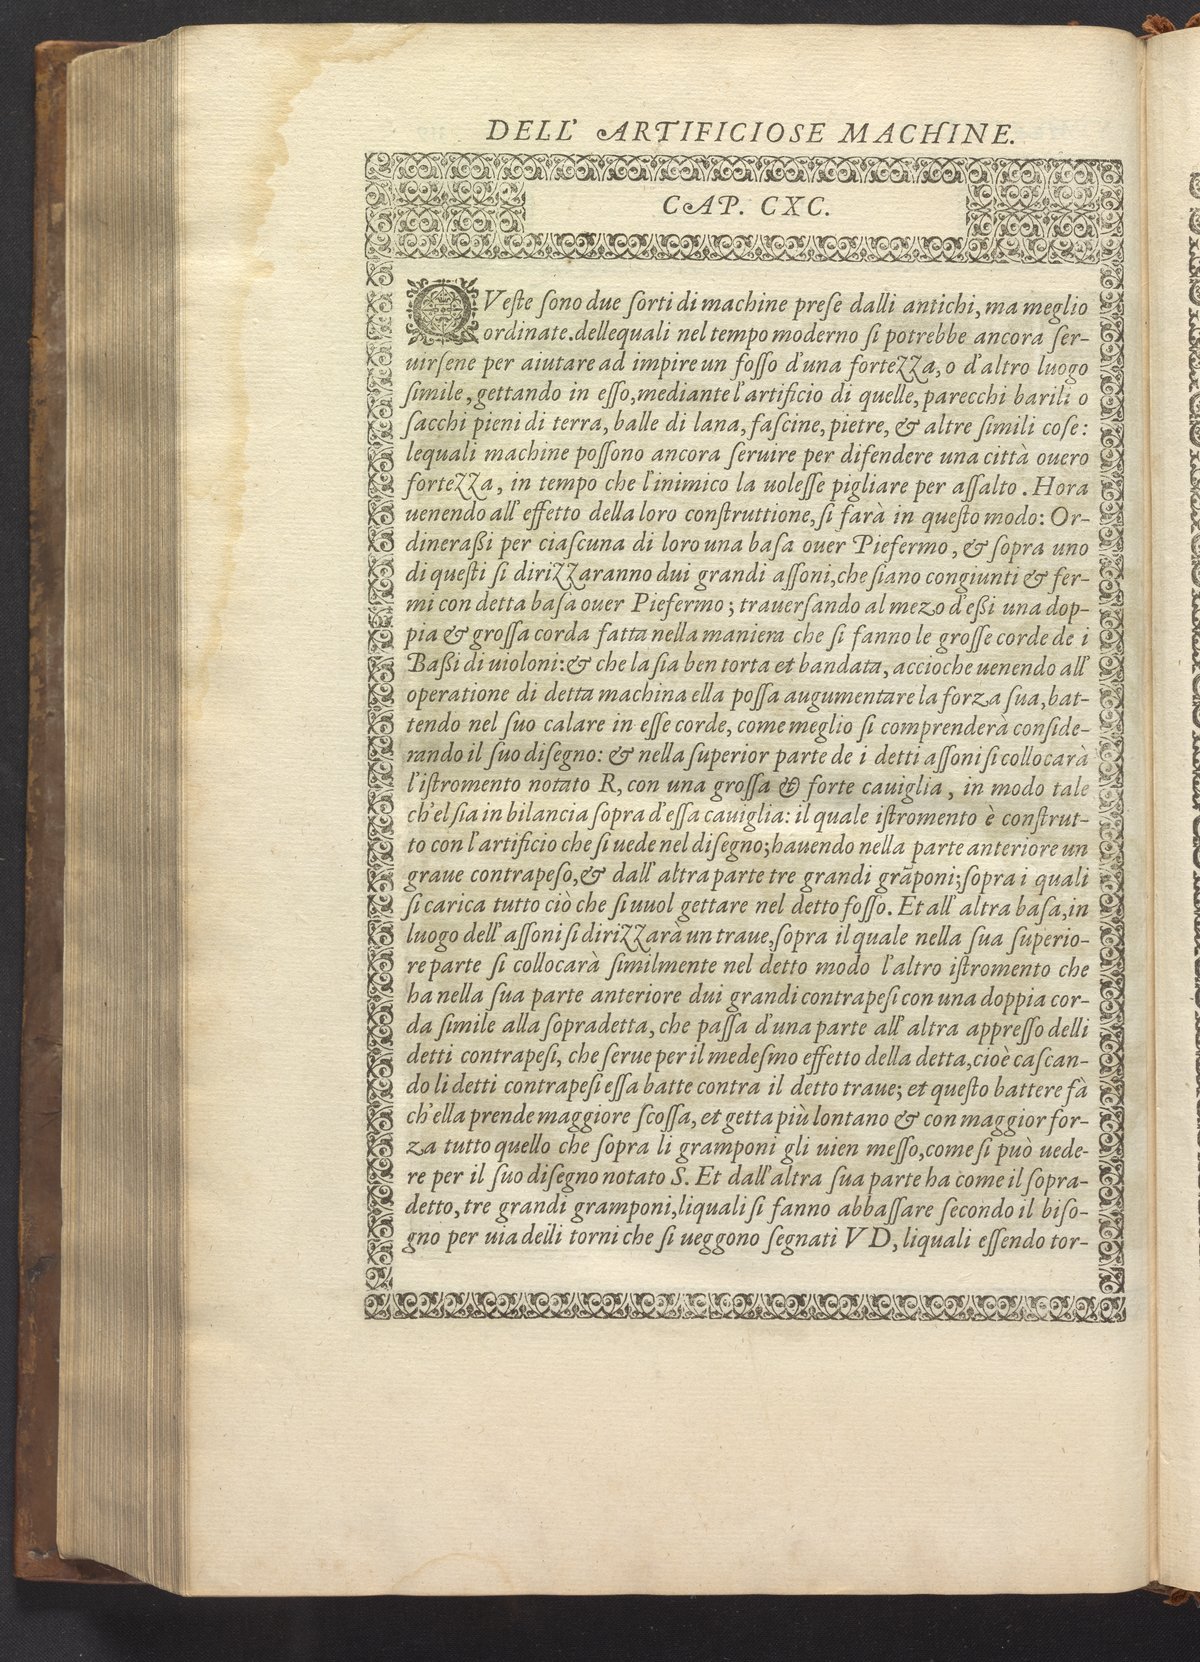 DELL' ARTIFICIOSE MACHINE.
CAP. CXC.
QVeste sono due sorti di machine prese dalli antichi, ma meglio
ordinate. dellequali nel tempo moderno si potrebbe ancora ser-
uirsene per aiutare ad impire un fosso d'una fortezza, o d'altro luogo
simile, gettando in esso, mediante l'artificio di quelle, parecchi barili o
sacchi pieni di terra, balle di lana, fascine, pietre, & altre simili cose:
lequali machine possono ancora seruire per difendere una città ouero
fortezza, in tempo che l'inimico la uolesse pigliare per assalto. Hora
uenendo all' effetto della loro construttione, si farà in questo modo: Or-
dinerassi per ciascuna di loro una basa ouer Piefermo, & sopra uno
di questi si dirizzaranno dui grandi assoni, che siano congiunti & fer-
mi con detta basa ouer Piefermo; trauersando al mezo d'essi una dop-
pia & grossa corda fatta nella maniera che si fanno le grosse corde de i
Bassi di uioloni: & che la sia ben torta et bandata, accioche uenendo all'
operatione di detta machina ella possa augumentare la forza sua, bat-
tendo nel suo calare in esse corde, come meglio si comprenderà conside-
rando il suo disegno: & nella superior parte de i detti assoni si collocarà
l'istromento notato R, con una grossa & forte cauiglia, in modo tale
ch'el sia in bilancia sopra d'essa cauiglia: il quale istromento è construt-
to con l'artificio che si uede nel disegno; hauendo nella parte anteriore un
graue contrapeso, & dall' altra parte tre grandi grāponi; sopra i quali
si carica tutto ciò che si uuol gettare nel detto fosso. Et all' altra basa, in
luogo dell' assoni si dirizzarà un traue, sopra il quale nella sua superio-
re parte si collocarà similmente nel detto modo l'altro istromento che
ha nella sua parte anteriore dui grandi contrapesi con una doppia cor-
da simile alla sopradetta, che passa d'una parte all' altra appresso delli
detti contrapesi, che serue per il medesmo effetto della detta, cioè cascan-
do li detti contrapesi essa batte contra il detto traue; et questo battere fà
ch'ella prende maggiore scossa, et getta più lontano & con maggior for-
za tutto quello che sopra li gramponi gli uien messo, come si può uede-
re per il suo disegno notato S. Et dall'altra sua parte ha come il sopra-
detto, tre grandi gramponi, liquali si fanno abbassare secondo il biso-
gno per uia delli torni che si ueggono segnati V D, liquali essendo tor-